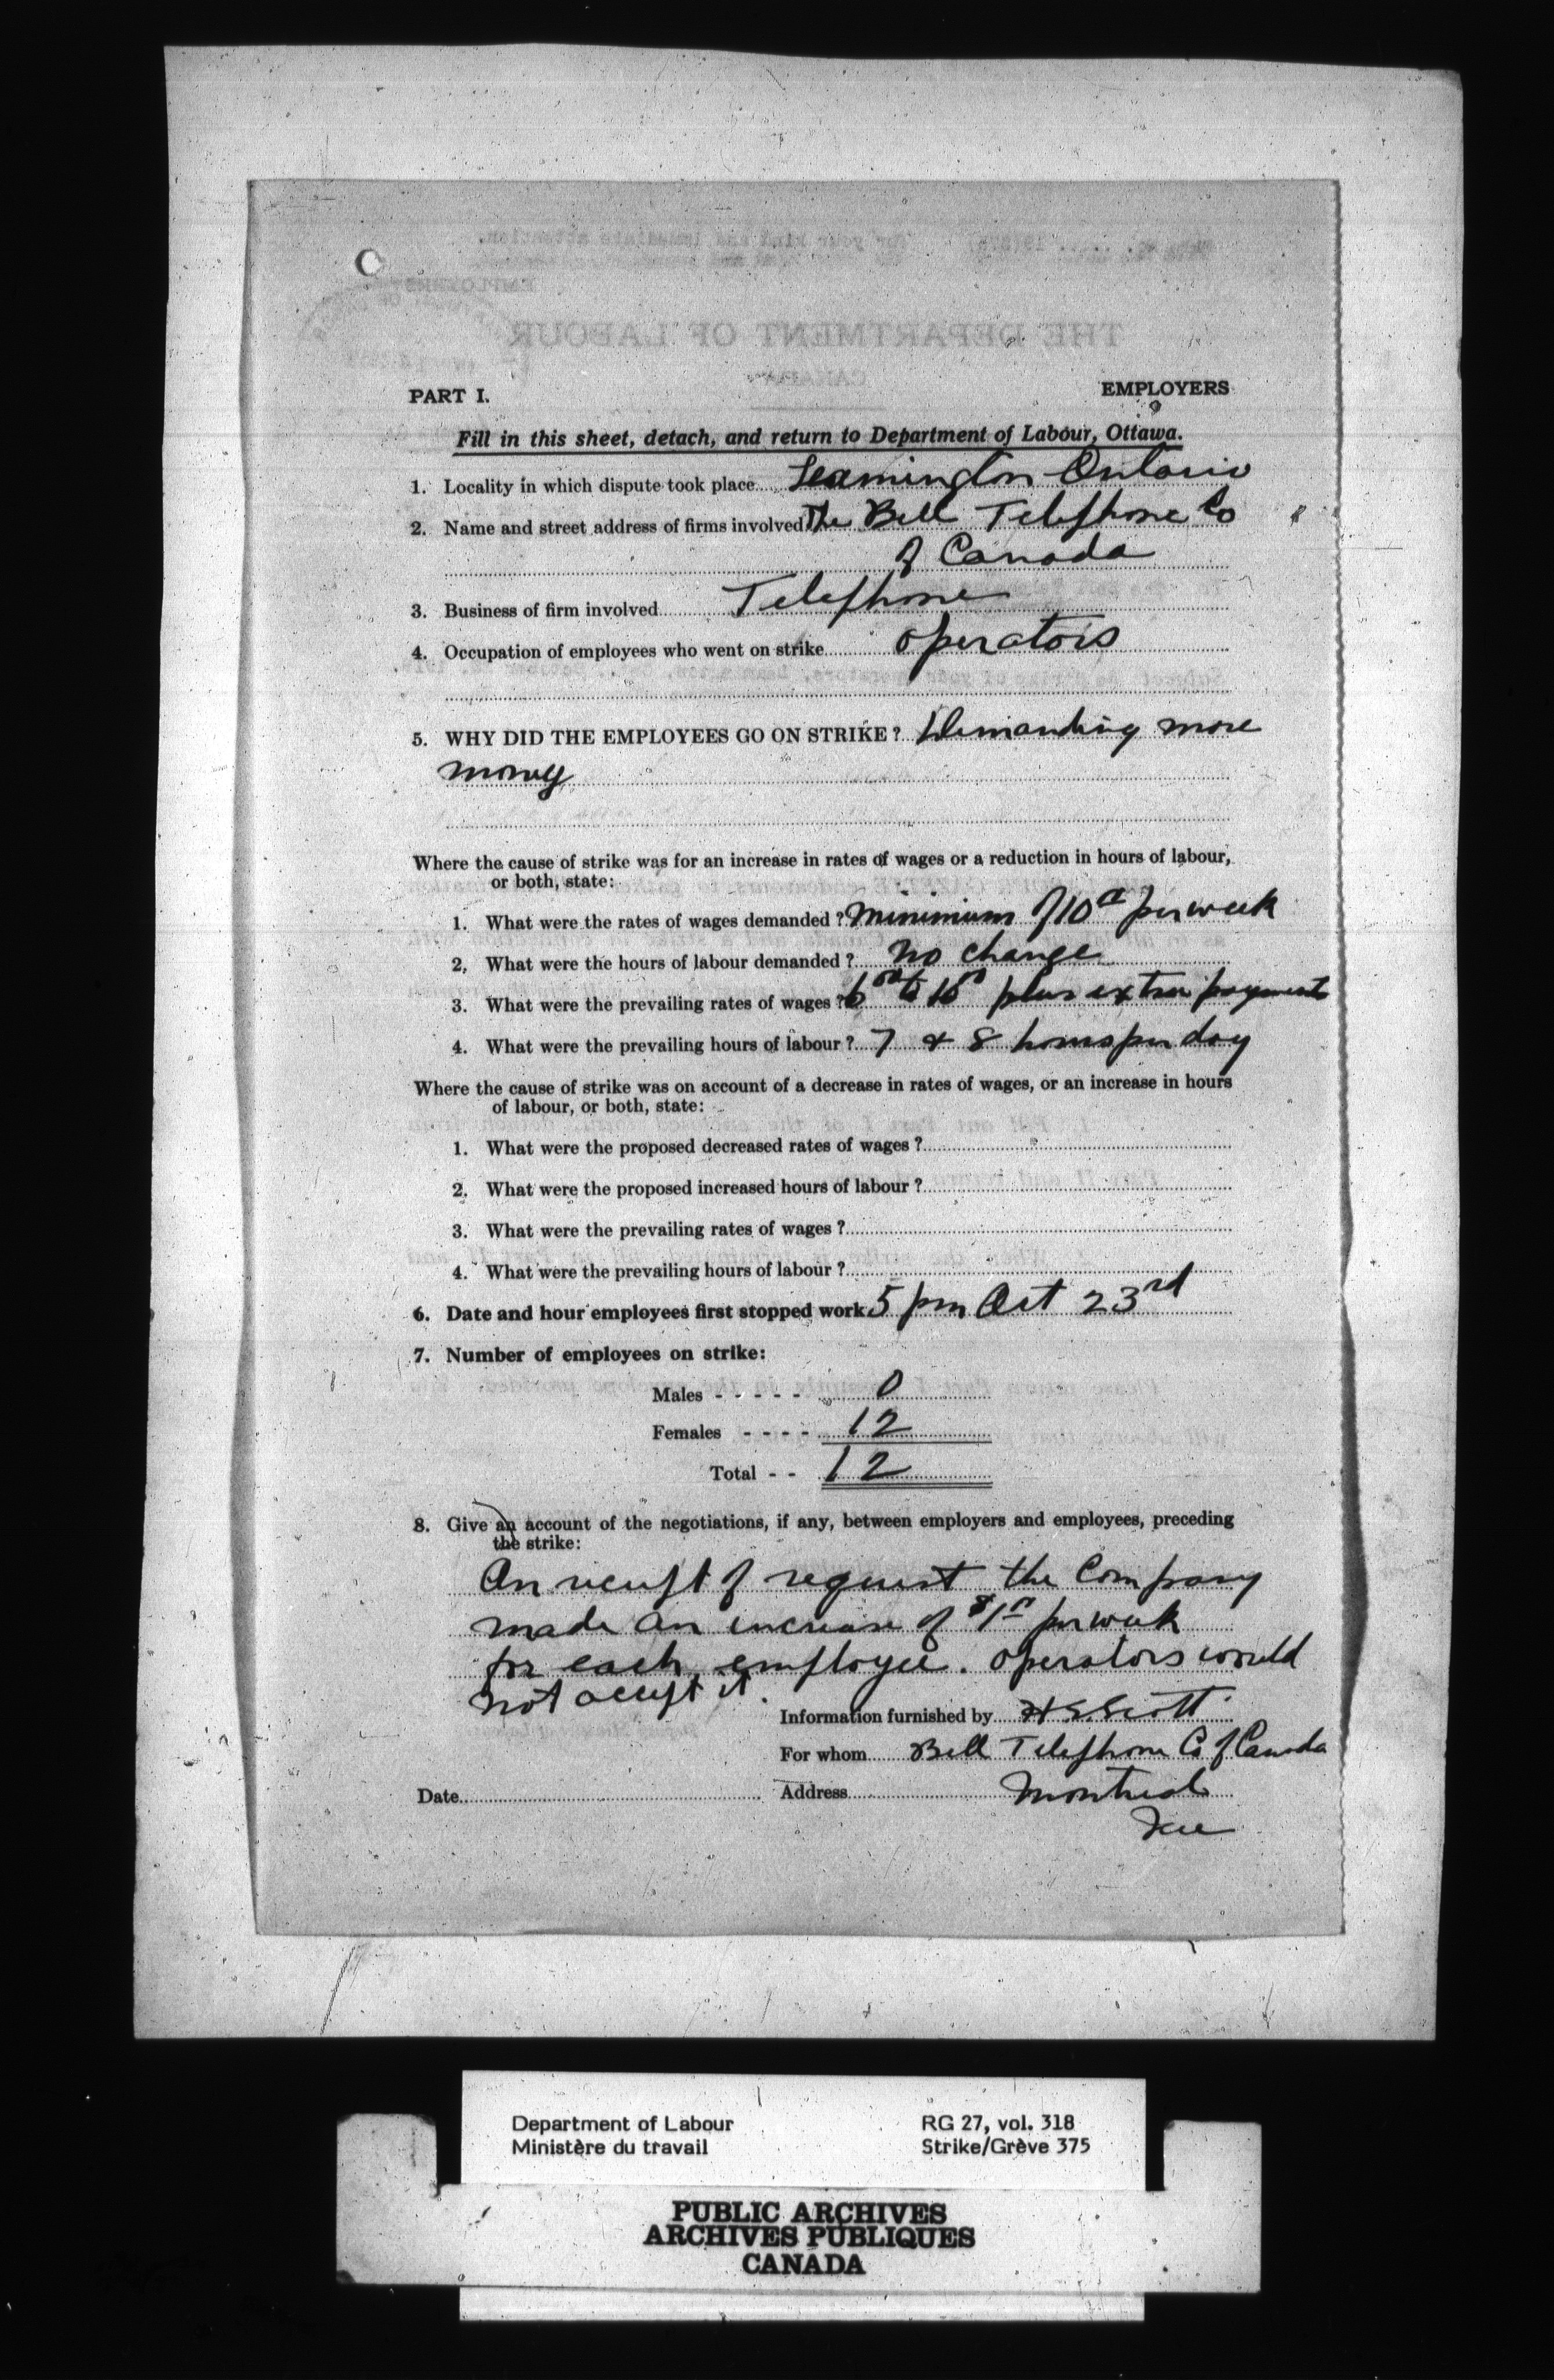 PART I.
EMPLOYERS
Fill in this sheet, detach, and return to Department of Labour, Ottawa.
1. Locality in which dispute took place Leamington Ontario
2. Name and street address of firms involved The Bell Telephone Co
of Canada
3. Business of firm involved Telephone
4. Occupation of employees who went on strike operators
5. WHY DID THE EMPLOYEES GO ON STRIKE? Demanding more
money
Where the cause of strike was for an increase in rates of wages or a reduction in hours of labour,
or both, state:
1. What were the rates of wages demanded? Minimum of 10 per week
2. What were the hours of labour demanded? No change
3. What were the prevailing rates of wages? 6 00 to 10 plus extra payments
4. What were the prevailing hours of labour? 7 & 8 hours per day
Where the cause of strike was on account of a decrease in rates of wages, or an increase in hours
of labour, or both, state:
1. What were the proposed decreased rates of wages?
2. What were the proposed increased hours of labour?
3. What were the prevailing rates of wages?
4. What were the prevailing hours of labour?
6. Date and hour employees first stopped work 5 pm Oct 23rd
7. Number of employees on strike:
Males - - - - - 0
Females - - - - 12
Total - - 12
8. Give an account of the negotiations, if any, between employers and employees, preceding
the strike:
An receipt of request the Company
made an increase of $1 per week
for each employee. Operators would
not accept it.
Information furnished by H E Scott
For whom Bell Telephone Co of Canada
Date
Address Montreal
Department of Labour
Ministère du travail
RG 27, vol. 318
Strike/Grève 375
PUBLIC ARCHIVES
ARCHIVES PUBLIQUES
CANADA